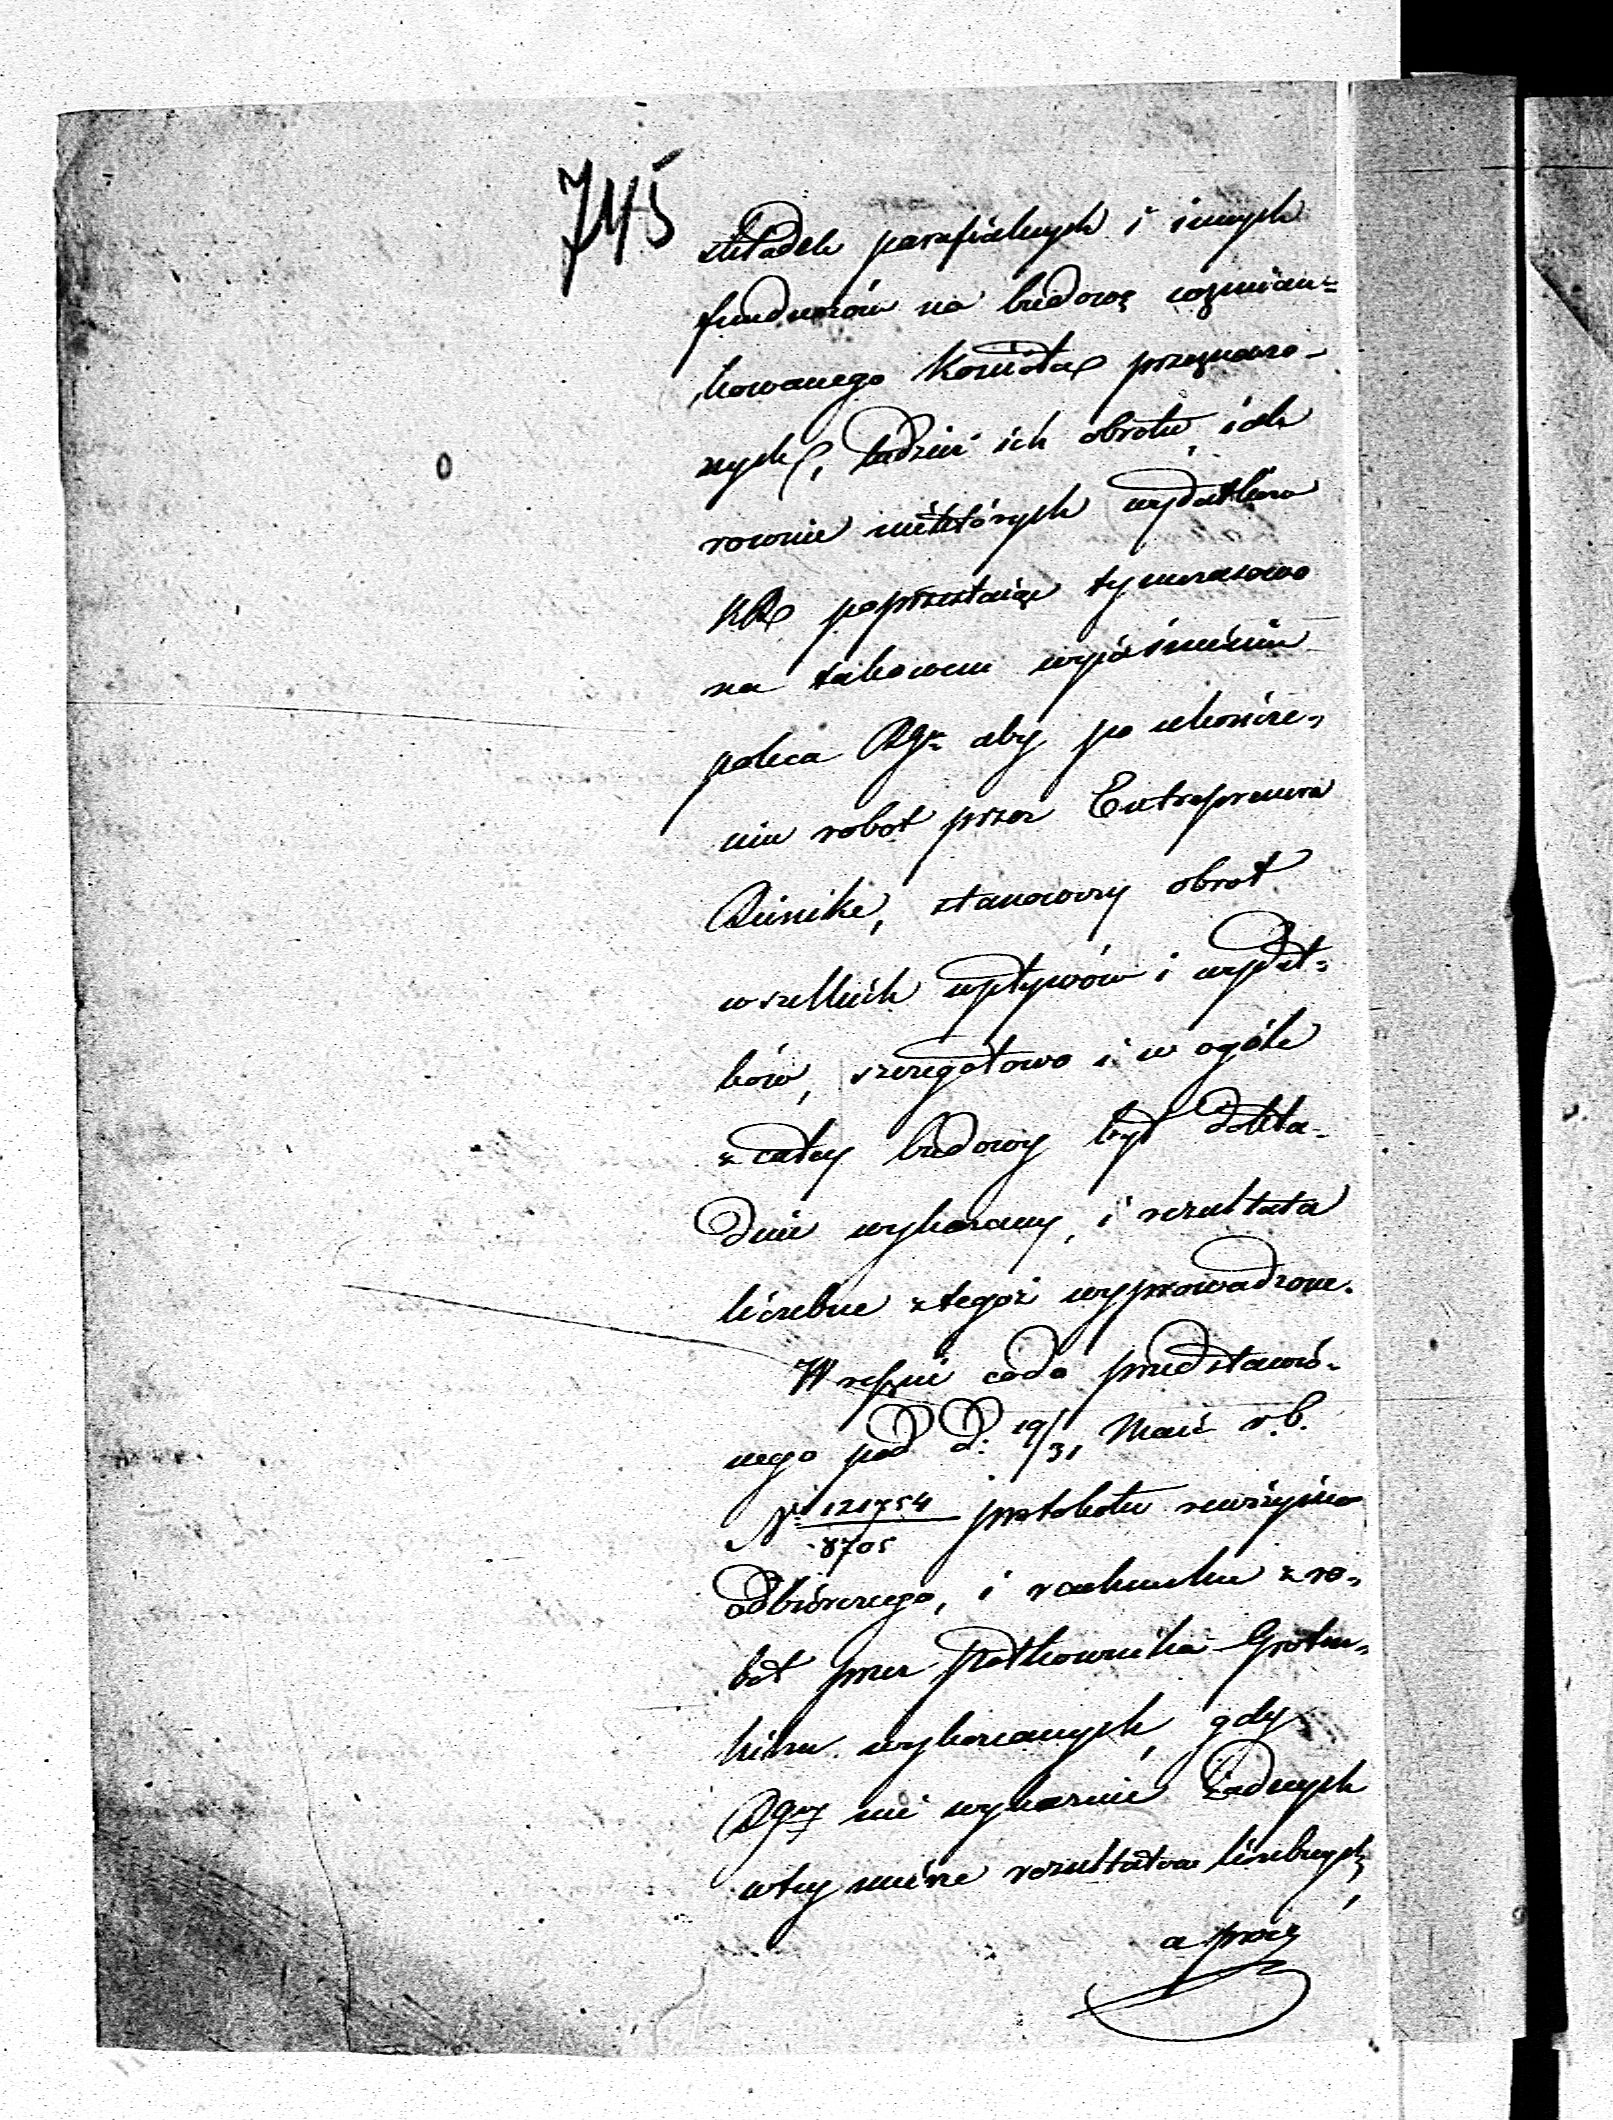 745
składek parafialnych i innych
funduszów na budowę wzmian=
kowanego Kościoła przeznaczo-
nych, tudzież ich obrotu, jak
rownie niektórych wydatkow
KR poprzestaiąc tymczasowo
na takowem wyiaśnieniu
poleca RGu aby po ukończe-
niu robot przez Entreprenera
stanowczy obrot
wszelkich wpływów i wydat=
ków, szczegółowo i w ogóle
z całey budowy był dokła-
dnie wykazany, i rezultata
liczebne z tegoż wyprowadzone.
W ressie codo przedstawio-
nego pod d: 19/31 Maia r.b.
N 121754/8705 protokołu rewizyino
odbiorczego, i rachunku z ro-
bot przez Pułkownika
wykonanych, gdy
RGny nie wykazuie żadnych
wtey mierze rezultatow liczebnych,
a przez